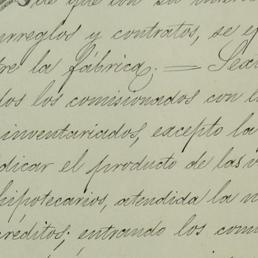 de que con su
arreglos y contratos, se e
tre la fábrica. = Sex
dos los comisionados con l
inventariados, excepto la
dicar el producto de las v
hipotecarios, atendida la n
créditos; entrando los com